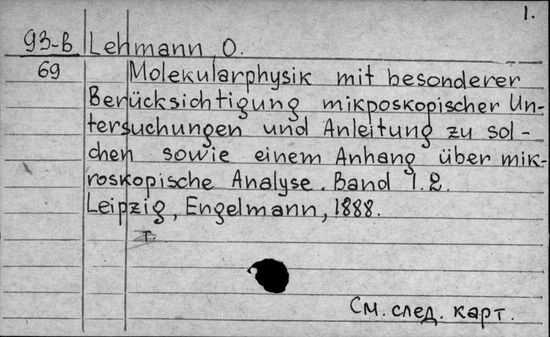 1.
93-В Lehmann, O.
69 Molekularphysik mit besonderer
Berücksichtigung mikposkopischer Un-
tersuchungen und Anleitung zu sol-
chen sowie einem Anhang über mik-
roskopische Analyse. Band 1.2.
Leipzig, Engelmann, 1888.
I
См. след. карт.